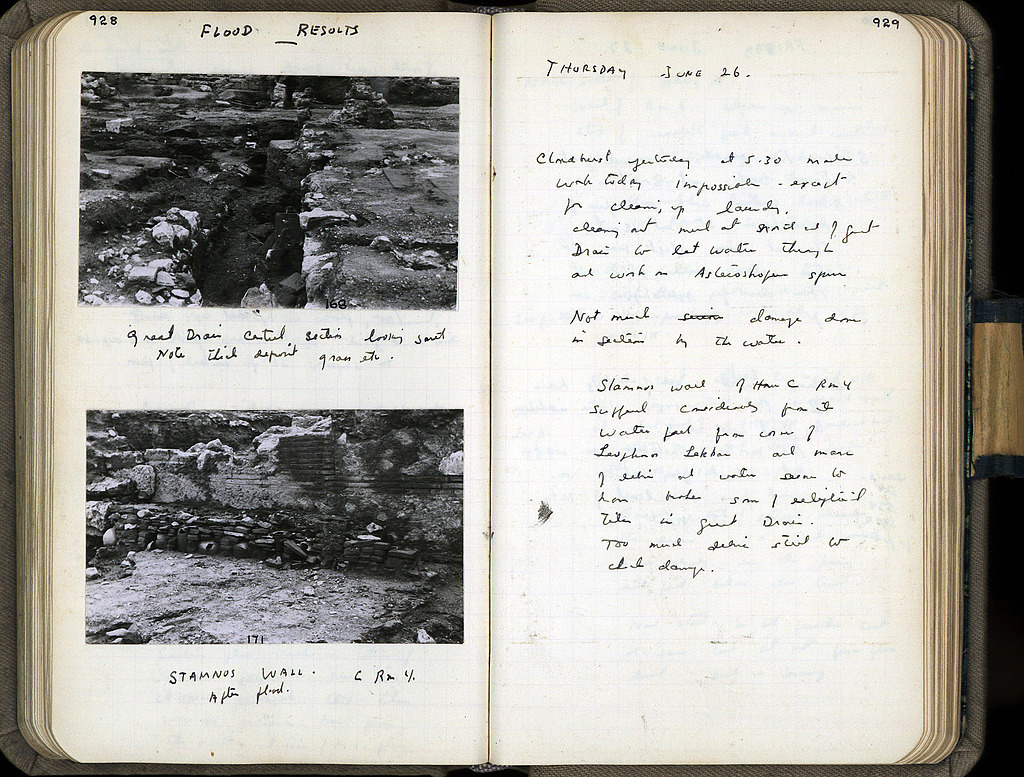 928
FLOOD RESULTS
168
Great Drain Central Section looking
Note thick deposit grass etc.
171
STAMNOS WALL. C Rm 4.
After flood.
929
THURSDAY JUNE 26.
Cloudburst yesterday at 5.30 made
work today impossible - except
for cleaning up laundry,
cleaning out mud at end of great
Drain to let water through
and work on
Not much damage done
in section by the water.
Stamnos wall of House C Rm 4
suffered considerably from
water from corner of
and mass
of debris and water seems to
have broken some of
tiles in great Drain.
Too much debris still to
check damage.